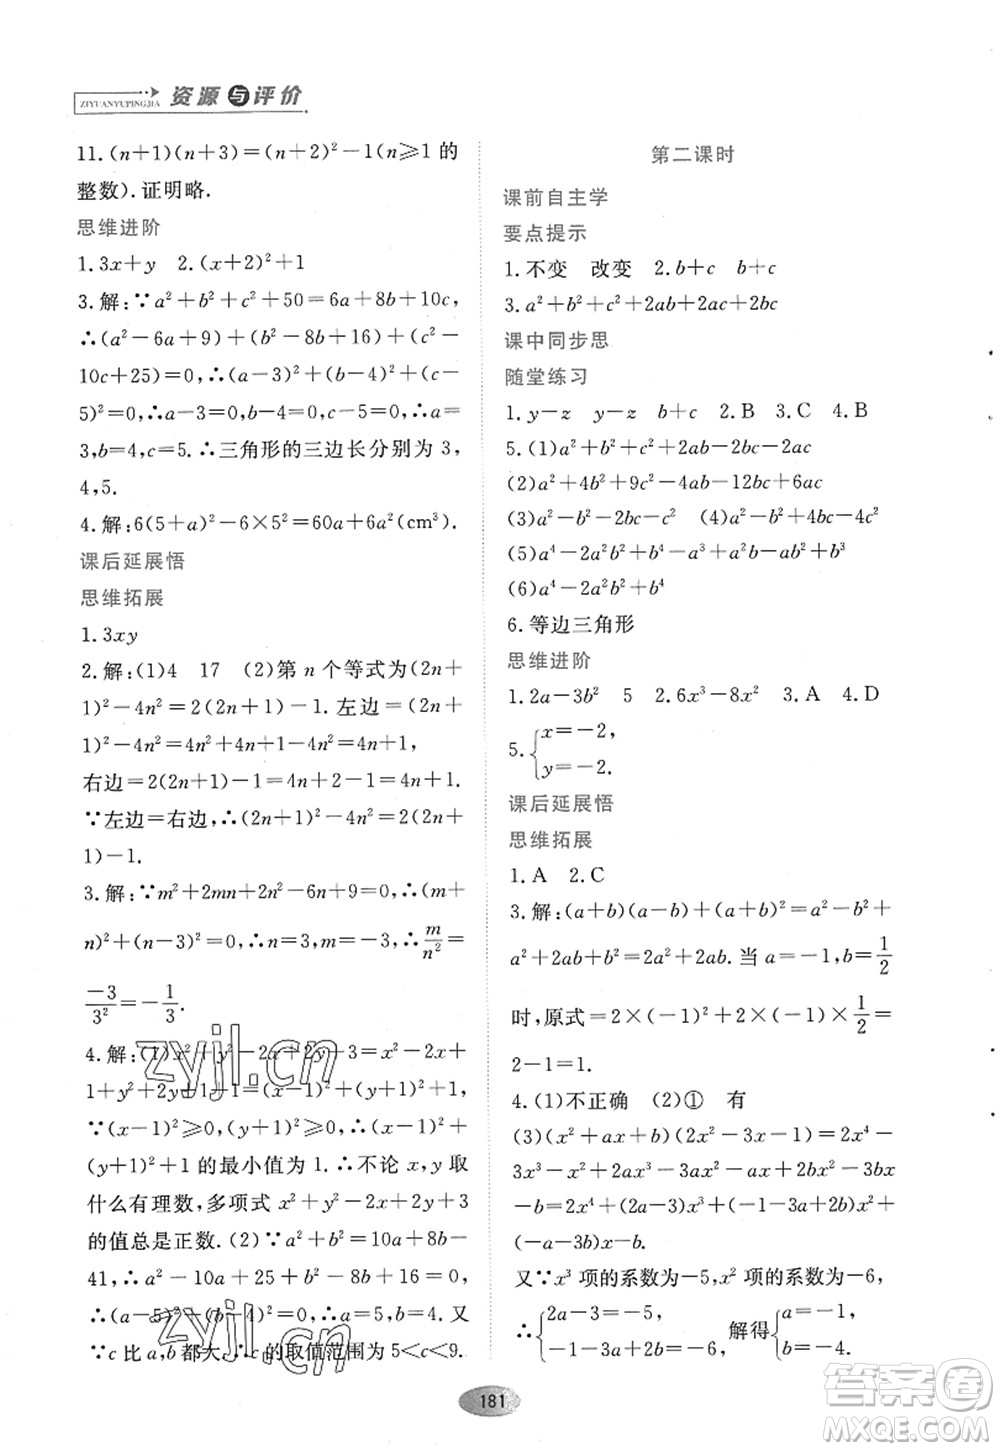 资源与评价
ZIYUANYUPINGJIA
11.(n+1)(n+3)=(n+2)²-1(n⩾1 的
整数).证明略.
思维进阶
1.3x+y 2.(x+2)²+1
3.解:∵a²+b²+c²+50=6a+8b+10c,
∴(a²-6a+9)+(b²-8b+16)+(c²-
10c+25)=0,∴(a-3)²+(b-4)²+(c-
5)²=0,∴a-3=0,b-4=0,c-5=0,∴a=
3,b=4,c=5.∴三角形的三边长分别为 3,
4,5.
4.解:6(5+a)²-6×5²=60a+6a²(cm³).
课后延展悟
思维拓展
1.3xy
2.解:(1)4 17 (2)第 n 个等式为(2n+
1)²-4n²=2(2n+1)-1.左边=(2n+
1)²-4n²=4n²+4n+1-4n²=4n+1,
右边=2(2n+1)-1=4n+2-1=4n+1.
∵左边=右边,∴(2n+1)²-4n²=2(2n
+1)-1.
3.解:∵m²+2mn+2n²-6n+9=0,∴(m+
n)²+(n-3)²=0,∴n=3,m=-3,∴m/n²=
-3/3²=-1/3.
4.解:(1)x²+y²-2x+2y+3=x²-2x+
1+y²+2y+1+1=(x-1)²+(y+1)²+1,
∵(x-1)²⩾0,(y+1)²⩾0,∴(x-1)²+
(y+1)²+1 的最小值为 1.∴不论 x,y 取
什么有理数,多项式 x²+y²-2x+2y+3
的值总是正数.(2)∵a²+b²=10a+8b-
41,∴a²-10a+25+b²-8b+16=0,
∴(a-5)²+(b-4)²=0,∴a=5,b=4.又
∵c 比 a,b 都大,∴c 的取值范围为 5<c<9.
第二课时
课前自主学
要点提示
1.不变 改变 2.b+c b+c
3.a²+b²+c²+2ab+2ac+2bc
课中同步思
随堂练习
1.y-z y-z 2.B 3.C 4.B
5.(1)a²+b²+c²+2ab-2bc-2ac
(2)a²+4b²+9c²-4ab-12bc+6ac
(3)a²-b²-c²+2bc (4)a²-b²+4bc-4c²
(5)a⁴-2a²b²+b⁴-a³b+2a²b²-ab³
(6)a⁴-2a²b²+b⁴
6.等边三角形
思维进阶
1.2a-3b² 5 2.6x³-8x² 3.A 4.D
5.{x=-2,
y=-2.
课后延展悟
思维拓展
1.A 2.C
3.解:(a+b)(a-b)+(a+b)²=a²-b²+
a²+2ab+b²=2a²+2ab.当 a=-1,b=1/2
时,原式=2×(-1)²+2×(-1)×1/2=
2-1=1.
4.(1)不正确 (2)① 有
(3)(x²+ax+b)(2x²-3x-1)=2x⁴-
3x³-x²+2ax³-3ax²-ax+2bx²-3bx
-b=2x⁴+(2a-3)x³+(-1-3a+2b)x²+
(-a-3b)x-b.
又∵x³ 项的系数为-5,x² 项的系数为-6,
∴{2a-3=-5, 解得{a=-1,
-1-3a+2b=-6, b=-4.
181
zyjl.cn
zyjl.cn
答案圈
MXQE.COM